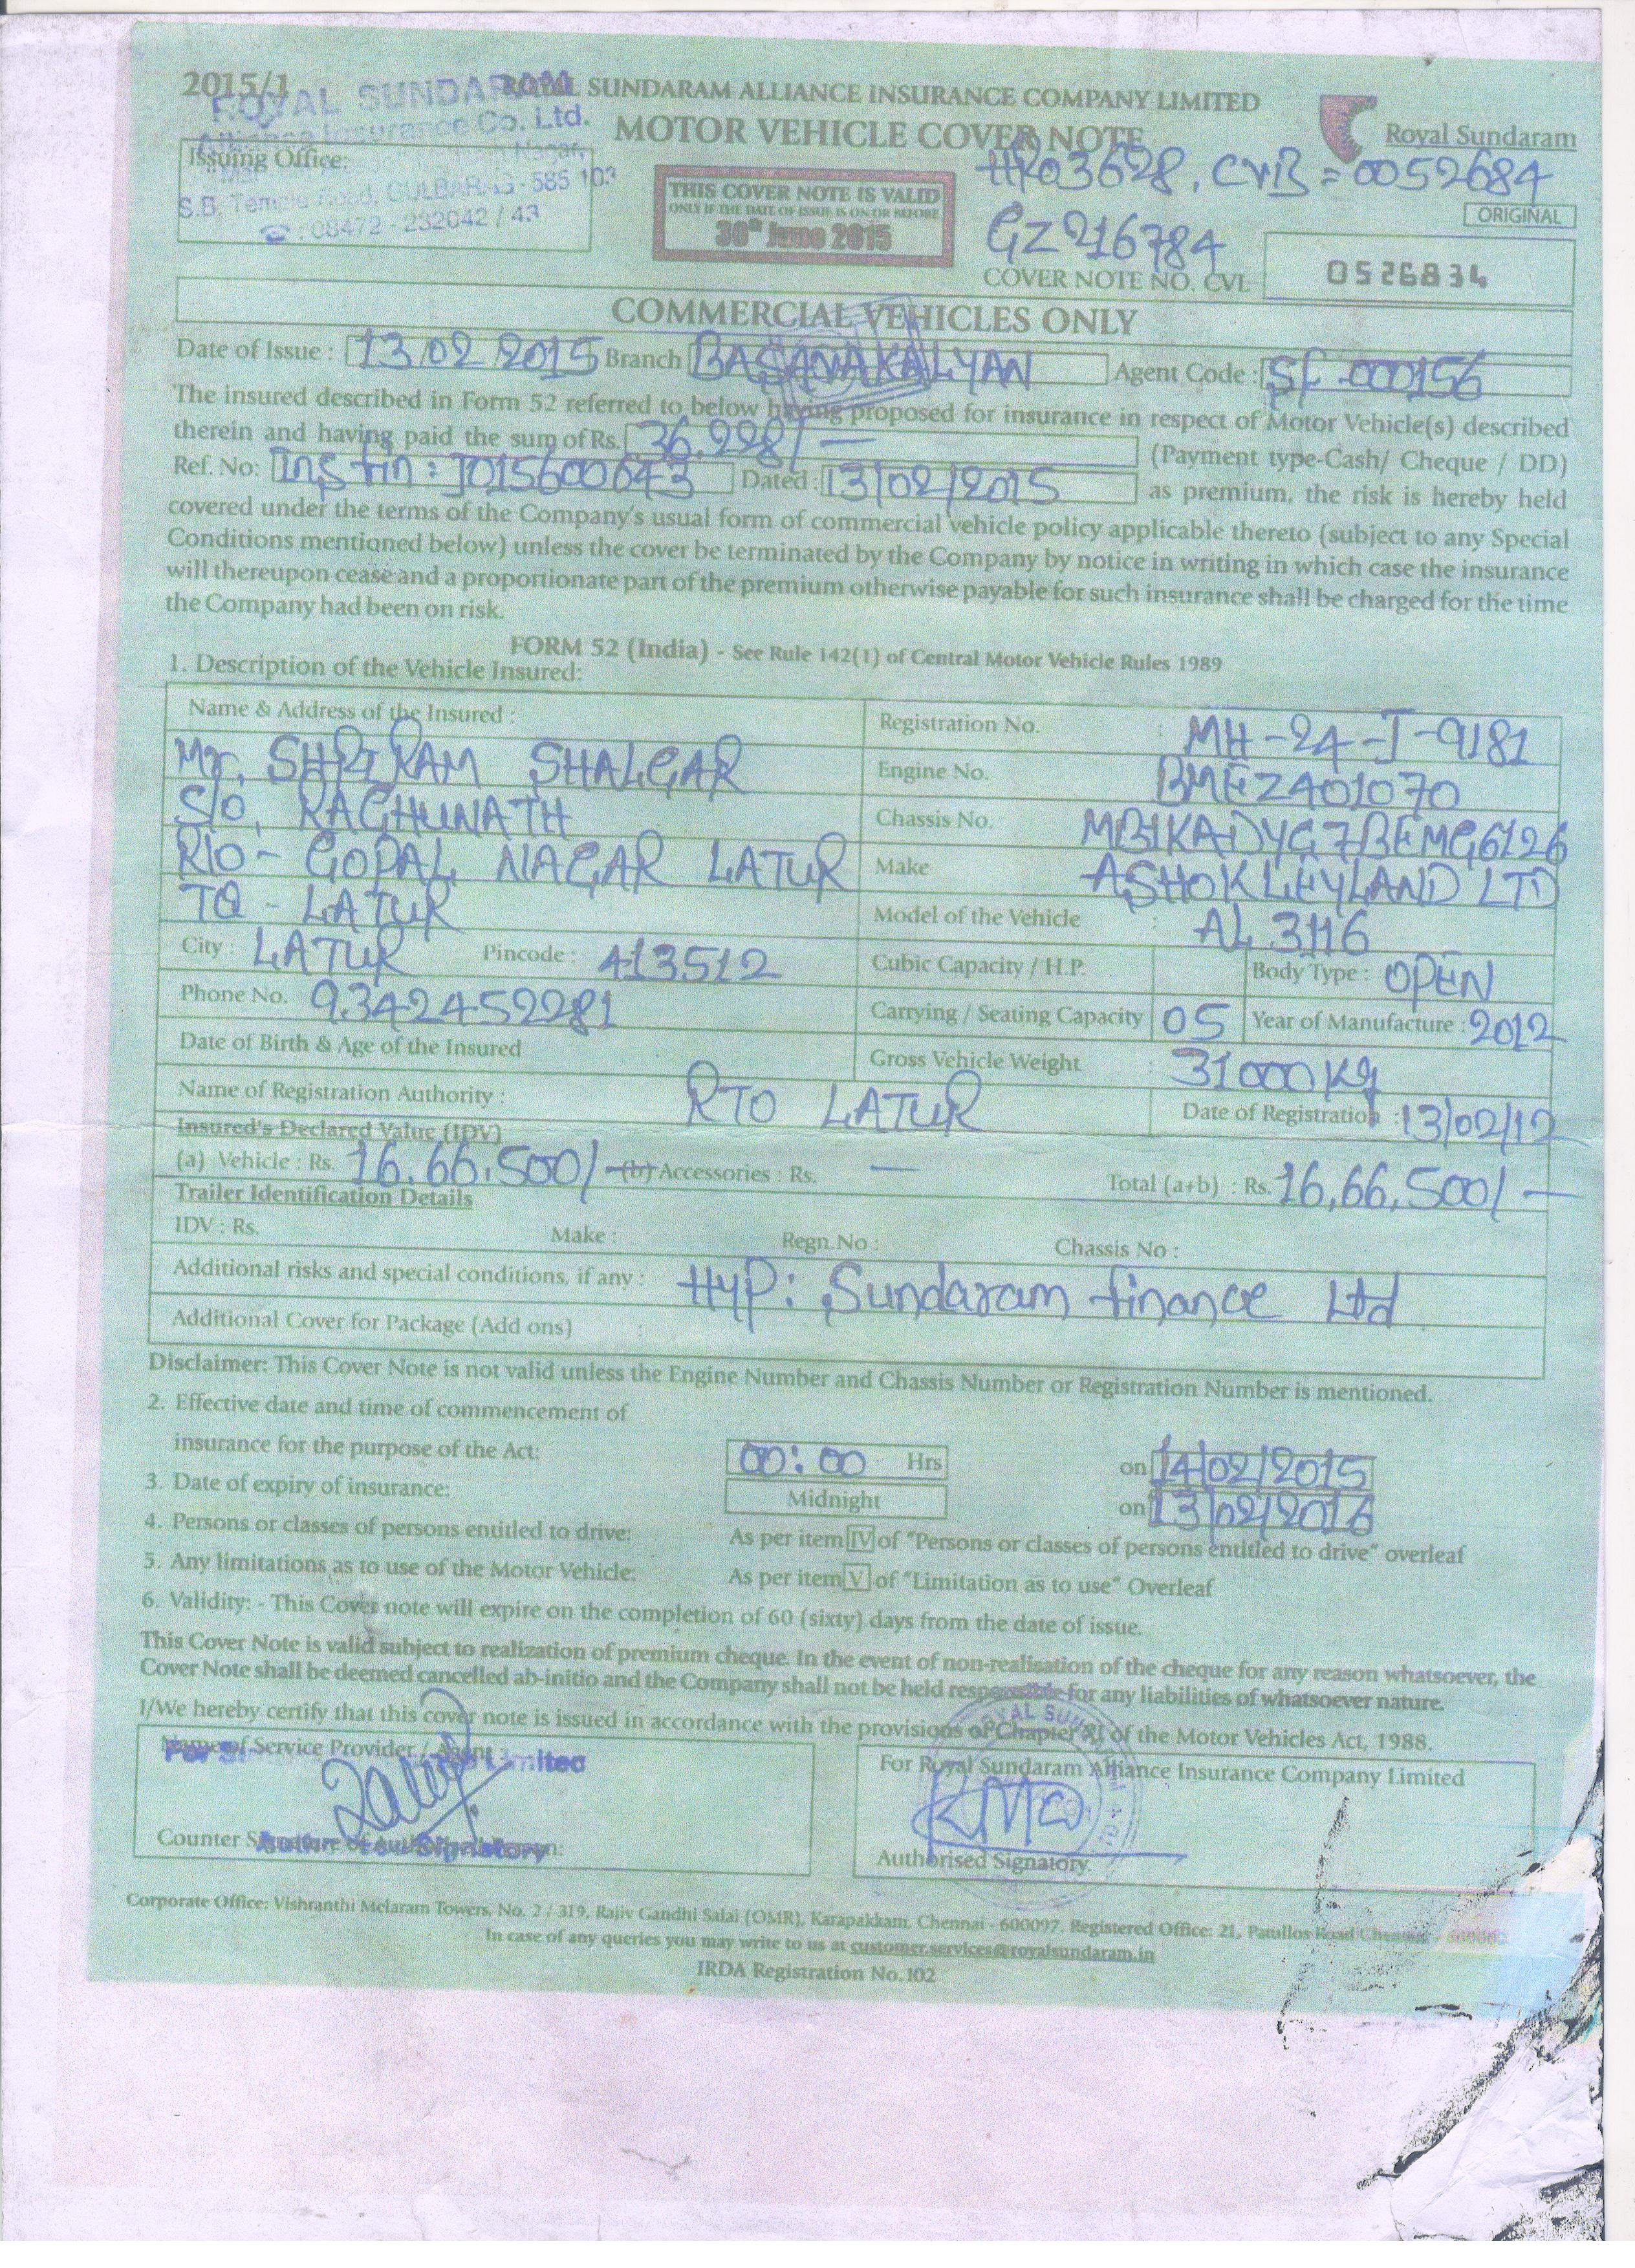 2015/1
ROYAL SUNDARAM ALLIANCE INSURANCE COMPANY LIMITED
ROYAL SUNDARAM
Alliance Insurance Co. Ltd.
MOTOR VEHICLE COVER NOTE
Royal Sundaram
Issuing Office:
Nagar,
S.B. Temple Road, GULBARGA - 585 103
☎ : 08472 - 232042 / 43
THIS COVER NOTE IS VALID
ONLY IF THE DATE OF ISSUE IS ON OR BEFORE
30th June 2015
HR03628, CVB = 0052684
ORIGINAL
GZ216784
COVER NOTE NO. CVL 0526834
COMMERCIAL VEHICLES ONLY
Date of Issue : 13.02 2015 Branch BASANAKALYAN Agent Code : SF-000156
The insured described in Form 52 referred to below having proposed for insurance in respect of Motor Vehicle(s) described
therein and having paid the sum of Rs. 36,228/- (Payment type-Cash/ Cheque / DD)
Ref. No: Ins tin: J015600643 Dated : 13/02/2015 as premium, the risk is hereby held
covered under the terms of the Company's usual form of commercial vehicle policy applicable thereto (subject to any Special
Conditions mentioned below) unless the cover be terminated by the Company by notice in writing in which case the insurance
will thereupon cease and a proportionate part of the premium otherwise payable for such insurance shall be charged for the time
the Company had been on risk.
FORM 52 (India) - See Rule 142(1) of Central Motor Vehicle Rules 1989
1. Description of the Vehicle Insured:
Name & Address of the Insured :
Mr. SHRIRAM SHALGAR
S/o, RAGHUNATH
R/O - GOPAL NAGAR LATUR
TQ - LATUR
City : LATUR Pincode : 413512
Phone No. 9342452281
Date of Birth & Age of the Insured
Registration No. : MH-24-J-9181
Engine No. BMEZ401070
Chassis No. MB1KADYG7BEMG6126
Make ASHOK LEYLAND LTD
Model of the Vehicle : AL 3116
Cubic Capacity / H.P. Body Type : OPEN
Carrying / Seating Capacity 05 Year of Manufacture : 2012
Gross Vehicle Weight : 31000Kg
Name of Registration Authority : RTO LATUR Date of Registration : 13/02/12
Insured's Declared Value (IDV)
(a) Vehicle : Rs. 16,66,500/- (b) Accessories : Rs. — Total (a+b) : Rs. 16,66,500/-
Trailer Identification Details
IDV : Rs. Make : Regn.No : Chassis No :
Additional risks and special conditions, if any : Hyp: Sundaram finance Ltd
Additional Cover for Package (Add ons) :
Disclaimer: This Cover Note is not valid unless the Engine Number and Chassis Number or Registration Number is mentioned.
2. Effective date and time of commencement of
insurance for the purpose of the Act: 00:00 Hrs on 14/02/2015
3. Date of expiry of insurance: Midnight on 13/02/2016
4. Persons or classes of persons entitled to drive: As per item IV of "Persons or classes of persons entitled to drive" overleaf
5. Any limitations as to use of the Motor Vehicle: As per item V of "Limitation as to use" Overleaf
6. Validity: - This Cover note will expire on the completion of 60 (sixty) days from the date of issue.
This Cover Note is valid subject to realization of premium cheque. In the event of non-realisation of the cheque for any reason whatsoever, the
Cover Note shall be deemed cancelled ab-initio and the Company shall not be held responsible for any liabilities of whatsoever nature.
I/We hereby certify that this cover note is issued in accordance with the provisions of Chapter XI of the Motor Vehicles Act, 1988.
Name of Service Provider / Agent
For Limited
Counter Signature of Authorised Person:
Signatory
For Royal Sundaram Alliance Insurance Company Limited
ROYAL SUN
Authorised Signatory.
Corporate Office: Vishranthi Melaram Towers, No. 2 / 319, Rajiv Gandhi Salai (OMR), Karapakkam, Chennai - 600097. Registered Office: 21, Patullos Road Chennai - 600002
In case of any queries you may write to us at customer.services@royalsundaram.in
IRDA Registration No.102